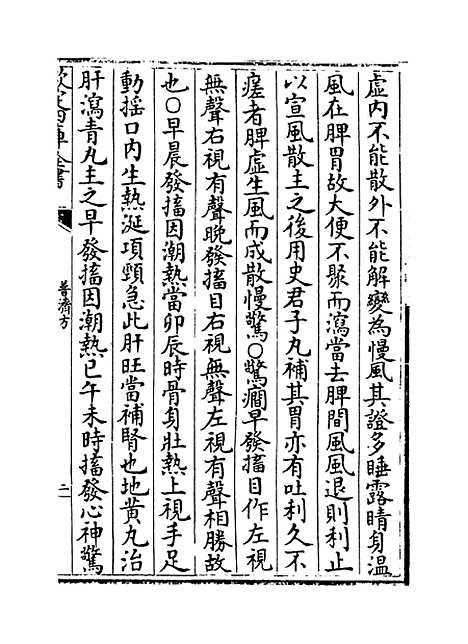 虚内不能散外不能解變為慢風其證多睡露睛身温
風在脾胃故大便不聚而瀉當去脾間風風退則利止
以宣風散主之後用史君子丸補其胃亦有吐利久不
瘥者脾虚生風而成散慢驚○驚癎早發搐目作左視
無聲右視有聲晚發搐目右視無聲左視有聲相勝故
也○早晨發搐因潮熱當卯辰時骨身壯熱上視手足
動搖口内生熱涎項頸急此肝旺當補腎也地黄丸治
肝瀉青丸主之早發搐因潮熱已午未時搐發心神驚
欽定四庫全書
普濟方
二